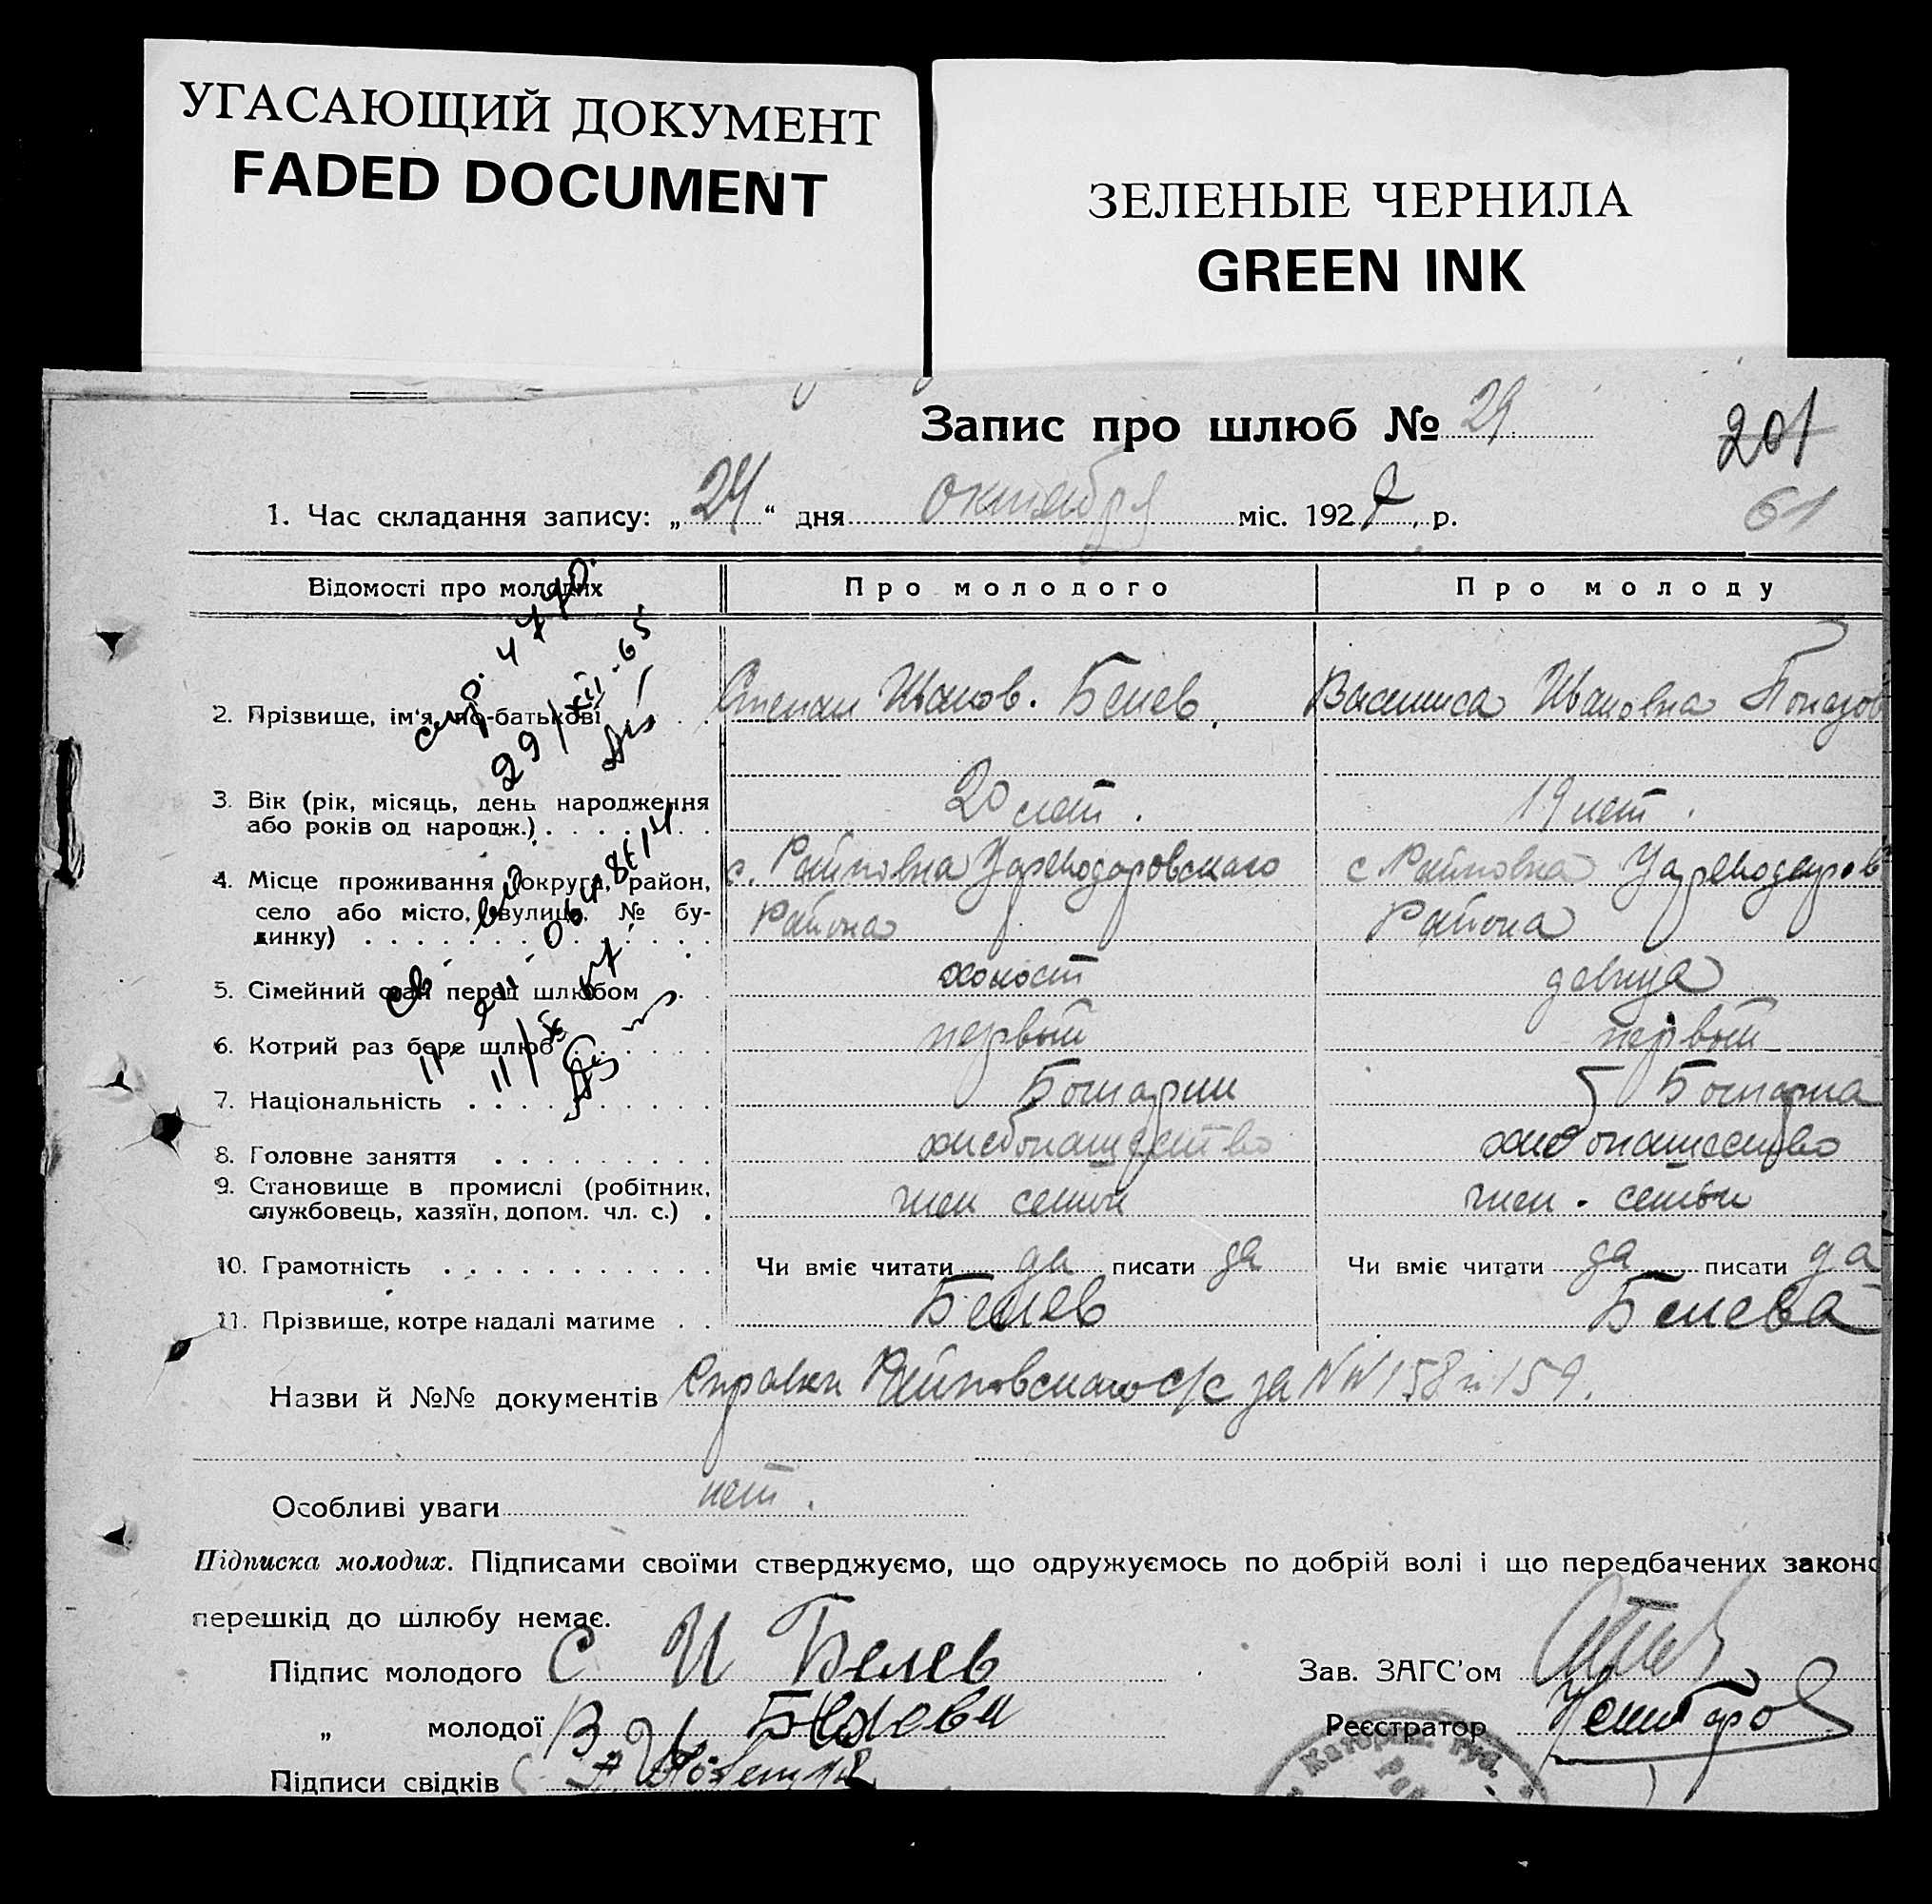 УГАСАЮЩИЙ ДОКУМЕНТ
FADED DOCUMENT
ЗЕЛЕНЫЕ ЧЕРНИЛА
GREEN INK
Запис про шлюб № 29
201
61
1. Час складання запису: „24“ дня октября міс. 192 р.
Відомості про молодих
Про молодого
Про молоду
2. Прізвище, ім'я, по-батькові
Степан Иванов. Белев.
Василиса Ивановна
3. Вік (рік, місяць, день народження
або років од народж.)
20 лет.
19 лет.
4. Місце проживання (округа, район,
село або місто, вулиця, № бу-
динку)
с. Райновка Царедаровского
Района
с Райновка
Района
5. Сімейний стан перед шлюбом
холост
девица
6. Котрий раз бере шлюб
первый
первый
7. Національність
Болгарин
Болгарка
8. Головне заняття
хлебопашество
хлебопашество
9. Становище в промислі (робітник,
службовець, хазяїн, допом. чл. с.)
член семьи
член. семьи
10. Грамотність
Чи вміє читати да писати да
Чи вміє читати да писати да
11. Прізвище, котре надалі матиме
Белев
Белева
Назви й №№ документів Справки Райновского с/с за NN 158 и 159.
Особливі уваги нет.
Підписка молодих. Підписами своїми стверджуємо, що одружуємось по добрій волі і що передбачених законо
перешкід до шлюбу немає.
Підпис молодого С И Белев
Зав. ЗАГС'ом
„ молодої В И Белева
Реєстратор
Підписи свідків